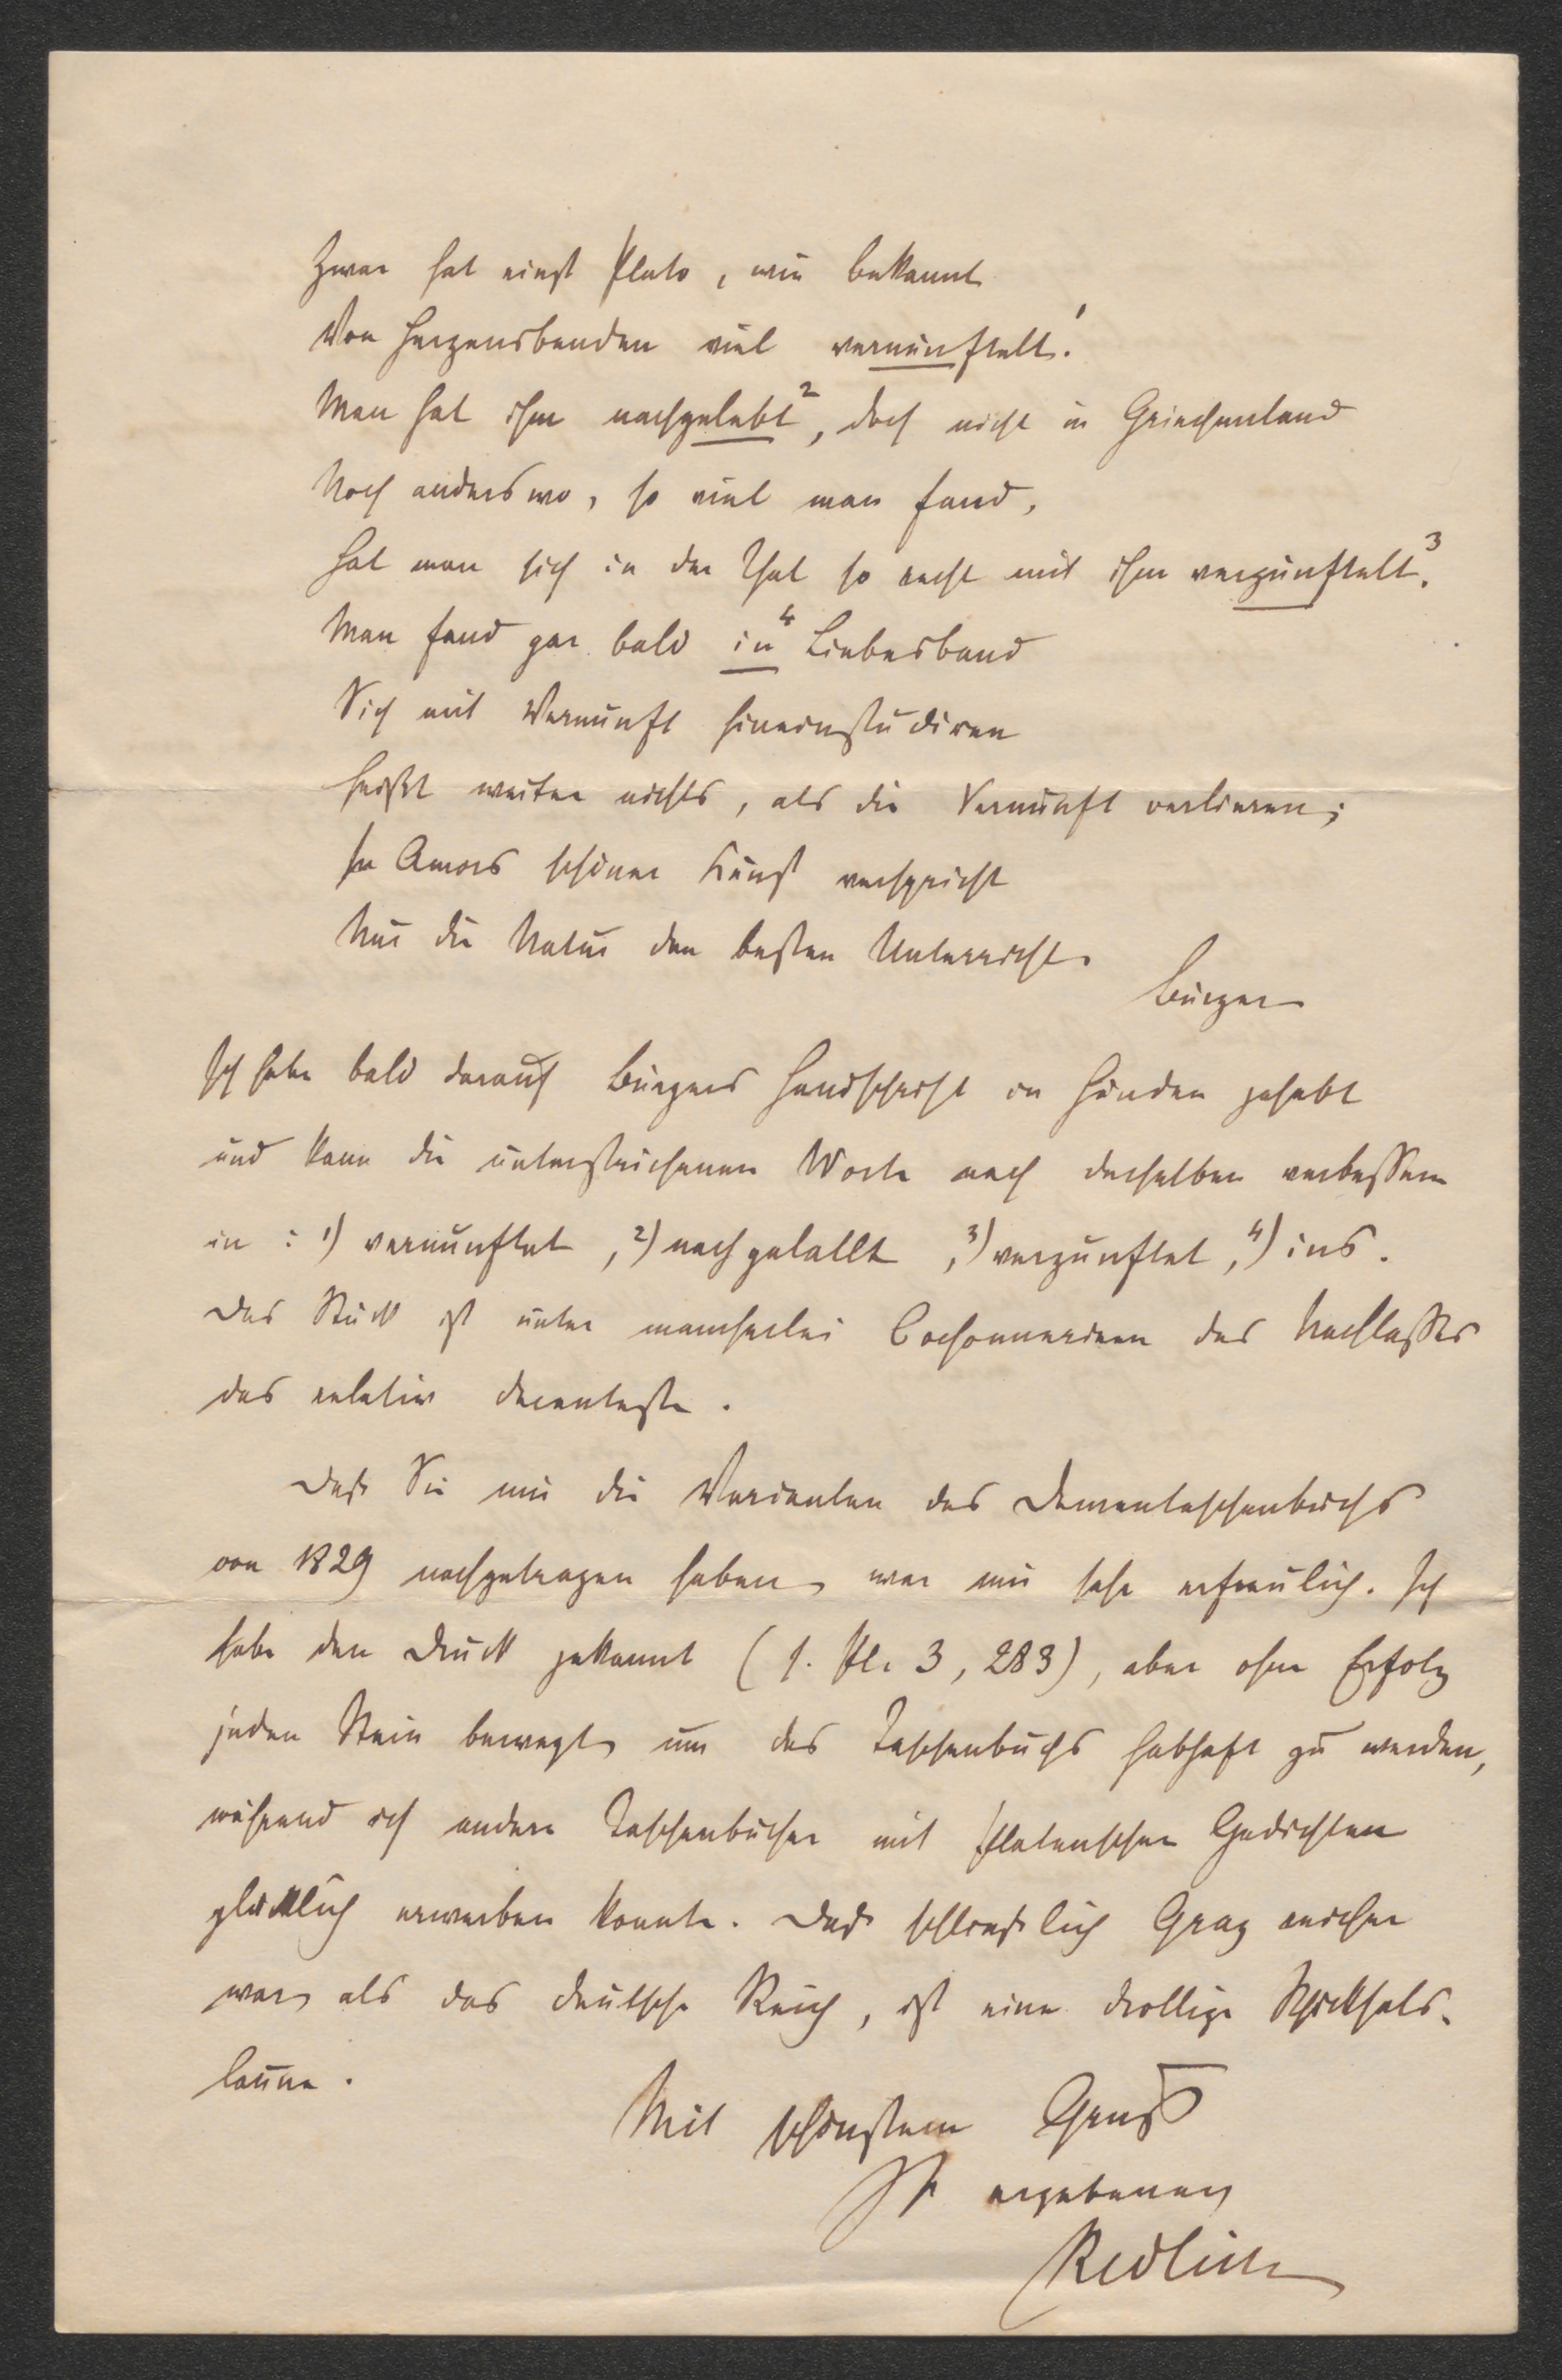 Zwar hat einst Plato, wie bekannt
Von Herzensbanden viel vernünftelt.¹
Man hat ihm nachgelebt², doch nicht in Griechenland
Noch anderswo, so viel man fand,
Hat man sich in der That so recht mit ihm verzünftelt³.
Man fand gar bald in⁴ Liebesband
Sich mit Vernunft hineinstudiren
Heißt weiter nichts, als die Vernunft verlieren;
In Amors schöner Kunst verspricht
Nur die Natur den besten Unterricht.
Bürger
Ich habe bald darauf Bürgers Handschrift in Händen gehabt
und kann die unterstrichenen Worte nach derselben verbessern
in: 1) vernünftet, 2) nachgelallt, 3) verzünftet, 4) ins.
Das Stück ist unter mancherlei Cochonnerieen des Nachlasses
das relativ decenteste.
Daß Sie mir die Varianten des Damentaschenbuchs
von 1829 nachgetragen haben, war mir sehr erfreulich. Ich
habe den Druck gekannt (s. Pl. 3, 283), aber ohne Erfolg
jeden Stein bewegt, um des Taschenbuchs habhaft zu werden,
während ich andere Taschenbücher mit Platenschen Gedichten
glücklich erwerben konnte. Daß schließlich Graz reicher
war, als das deutsche Reich, ist eine drollige Schicksals-
laune.
Mit schönstem Gruß
Ihr ergebener
Redlich